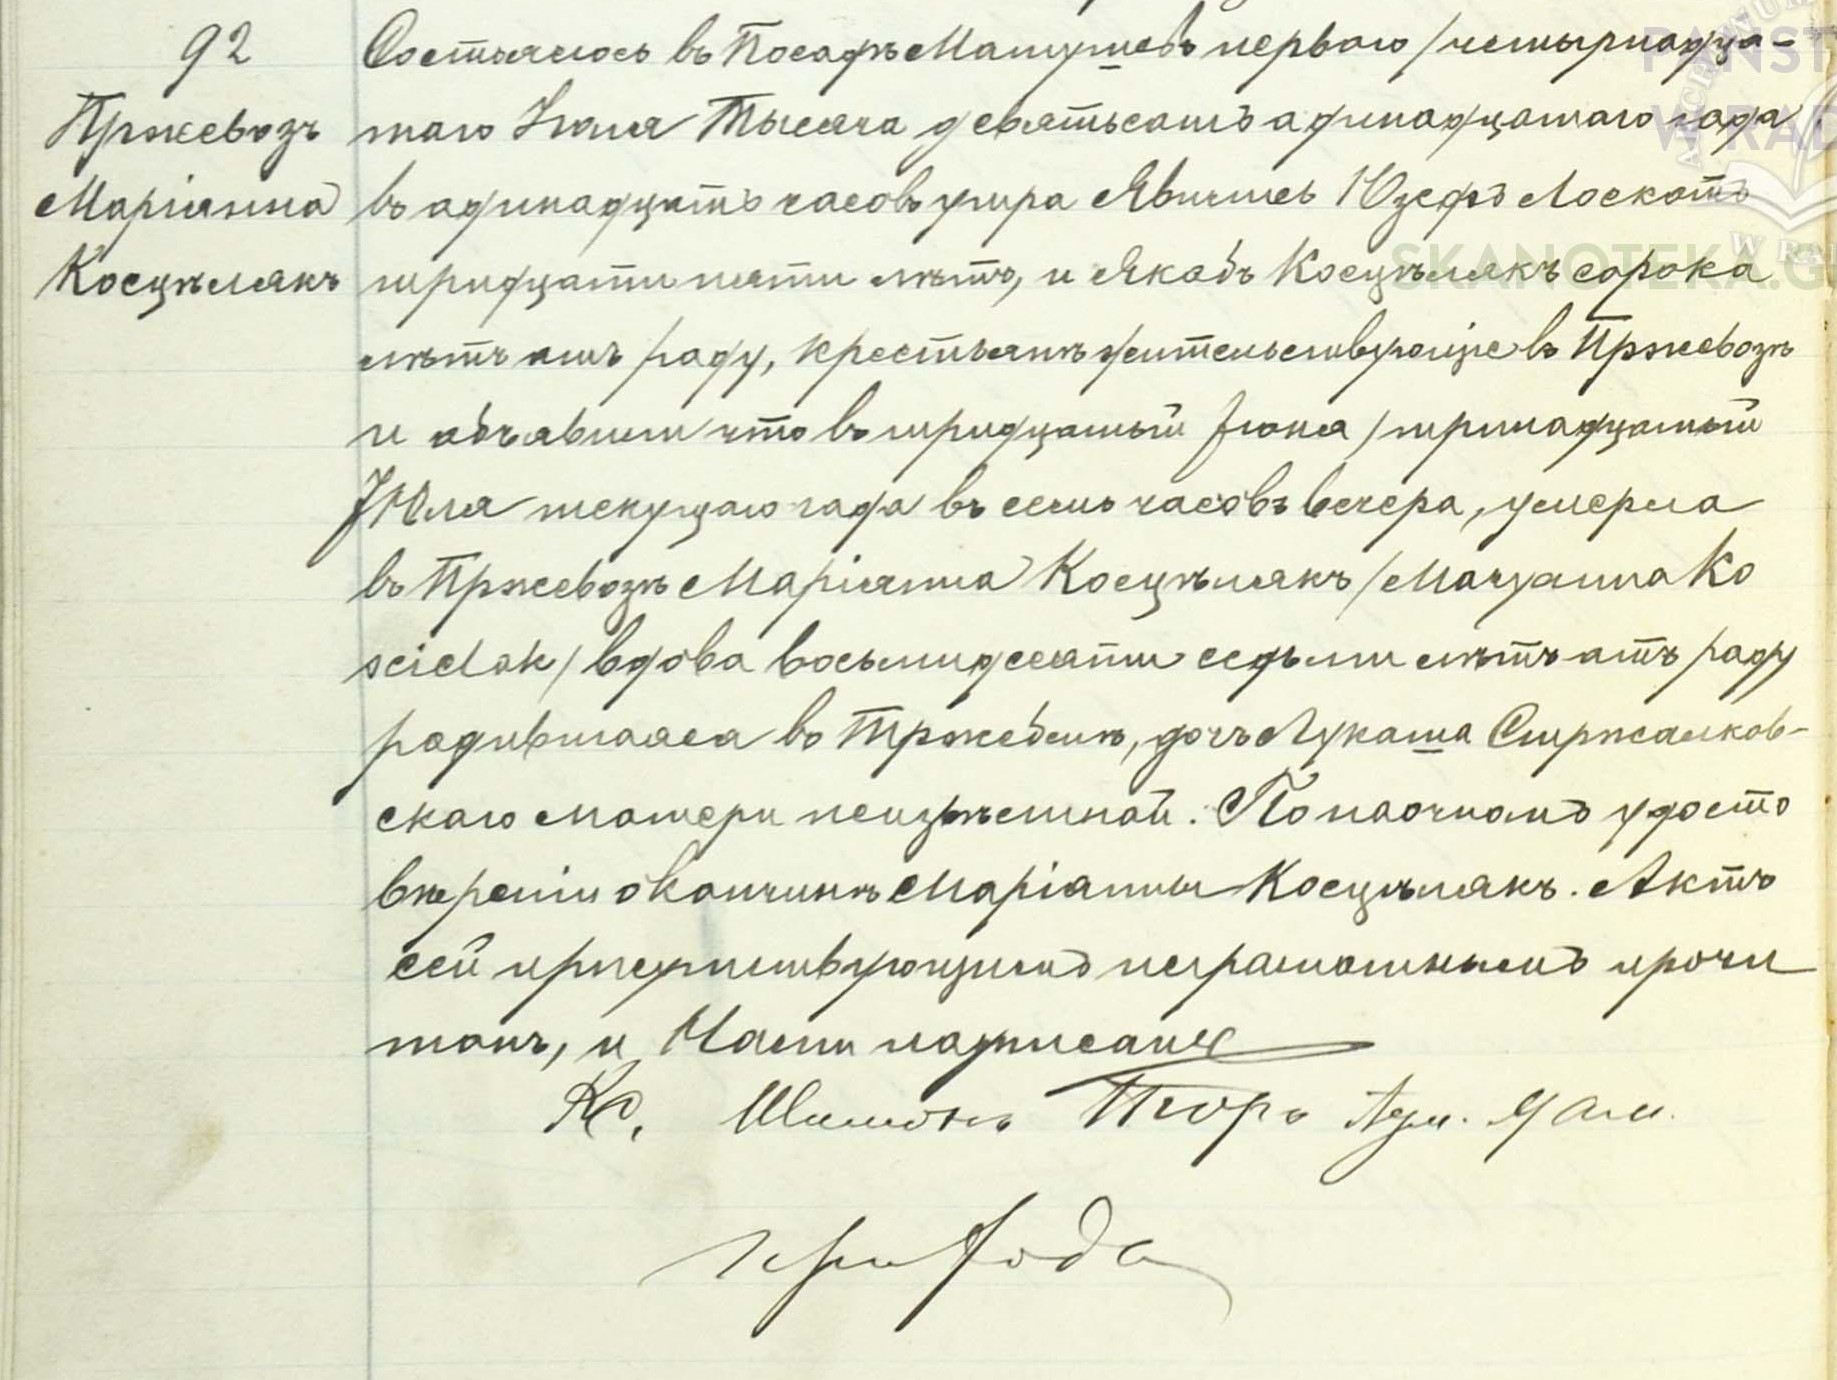 92
Пржевозъ
Маріанна
Косцѣлякъ
Состоялось въ Посадѣ Матушевъ перваго /четырнадца-
таго Іюля Тысяча девятьсатъ адинадцатаго гада
въ адинадцать часовъ утра Явились Юзефъ Лоскотъ
тридцати пяти лѣтъ, и Якобъ Косцѣлякъ сорока
лѣтъ атъ раду, крестьяне жительствующіе въ Пржевозѣ
и объявили что въ тридцатый Іюня /тринадцатый
Июля текущаго гада въ семь часовъ вечера, умерла
въ Пржевозѣ Маріянна Косцѣлякъ /Маryanna Ko
scielak/ вдова восьмидесяти седьми лѣтъ атъ раду
радившаяся въ Тржебини, дочъ Лукаша Стржалков-
скаго матери неизвѣстной. По наочномъ удосто
вѣреніи о кончинѣ Маріанны Косцѣлякъ. Актъ
сей присутствующимъ неграмотнымъ прочи
танъ, и Нами надписанъ
Кс. Шимонъ Адм. Пам.
прихода
PAŃST
W RAD
SKANOTEKA.G
W RA